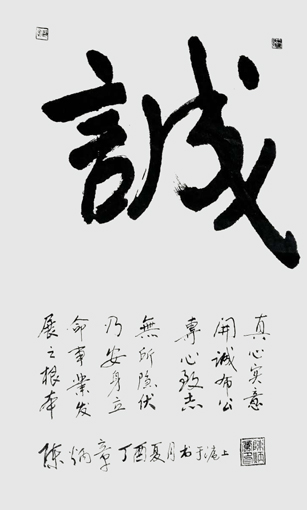 誠
真心实意
開誠布公
專心致志
無所隐伏
乃安身立
命事業发
展之根本
陈炳章丁酉夏月书于沪上